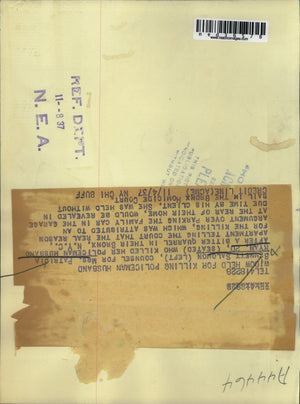 REF. DEPT.
11--8 37
N. E. A.
TEL18228
WIDOW HELD FOR KILLING POLICEMAN HUSBAND
SALOMON (LEFT), COUNSEL FOR MRS PATRICIA
RYAN, 20, (SEATED) WHO KILLED HER POLICEMAN HUSBAND
AFTER A BITTER QUARREL IN THEIR BRONX, N.Y.C.,
APARTMENT TELLING THE COURT THAT THE REAL REASON
FOR THE KILLING, WHICH WAS ATTRIBUTED TO AN
ARGUMENT OVER PARKING THE FAMILY CAR IN THE GARAGE
AT THE REAR OF THEIR HOME, WOULD BE REVEALED IN
DUE TIME BY HIS CLIENT. SHE WAS HELD WITHOUT
BAIL IN THE BRONX HOMICIDE COURT.
CREDIT LINE (ACME) 11/4/37 NY CHI BUFF
A4464